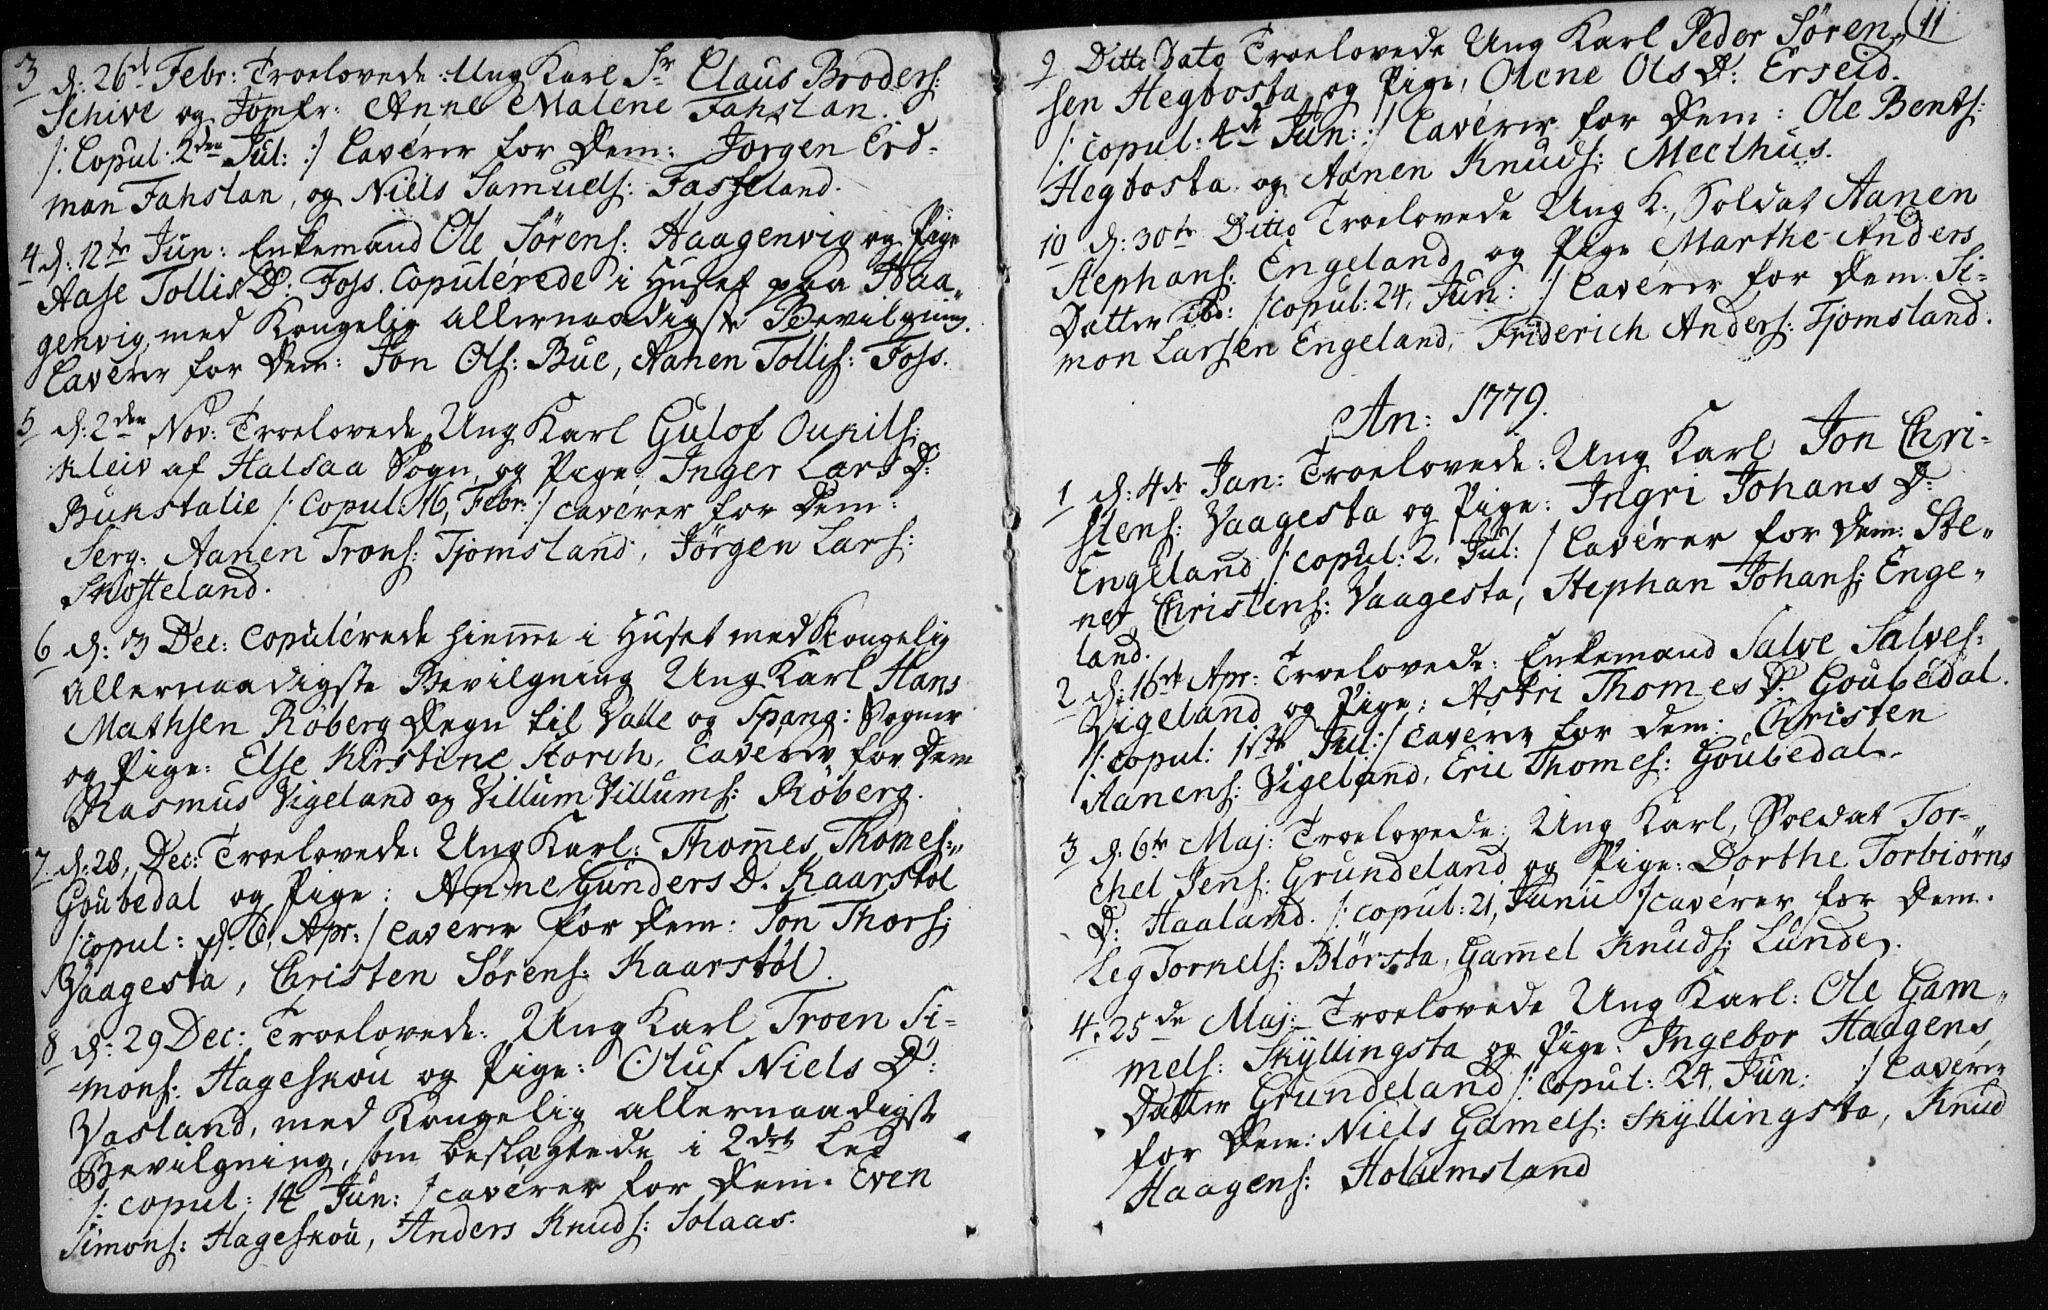 3 d: 26d Febr: Troelovede: Ung Karl Sr Claus Broders:
Schive og Jomfr: Anne Malene Fahslan.
/: Copul: 2den Jul: :/ Cavérer for Dem: Jørgen Erd-
man Fahslan, og Niels Samuels: Fasseland.
4 d: 12te Jun: Enkemand Ole Sørens: Haagenvig og Pige
Aase Tollis D: Foss. Copulérede i Huset paa Haa„
genvig, med Kongelig allernaadigste Bevilgning.
Cavérer for Dem: Jon Ols: Bue, Aanen Tollis: Foss.
5 d: 2den Nov: Troelovede Ung Karl Gulof Ounils:
Kleiv af Halsaa Sogn, og Pige: Inger Lars D:
Bunstalie /: Copul: 16, Febr: :/ cavérer for Dem:
Serg: Aanen Trons: Tjomsland, Jørgen Lars:
Skofteland.
6 d: 3 Dec: Copulérede hieme i Huset med Kongelig
allernaadigste Bevilgning Ung Karl Hans
Mathsen Röberg Degn til Valle og Spang: Sogner
og Pige: Else Kirstine Storch, Cavérer for Dem
Rasmus Vigeland og Villum Villums: Röberg.
7. d: 28, Dec: Troelovede: Ung Karl: Thomes Thomes:„
Goubedal og Pige: Anne Gunders D. Kaarstøl
/: copul: d: 6, Apr: / cavérer for Dem: Jon Thors:
Vaagesta, Christen Sørens: Kaarstøl.
8 d: 29 Dec: Troelovede: Ung Karl Troen Si-
mons: Hageskou og Pige: Oluf Niels D:
Vasland, med Kongelig allernaadigst
Bevilgning, som beslægtede i 2det Led
/: copul: 14 Jun: / cavérer for Dem. Even
Simons: Hageskou, Anders Knuds: Solaas.
11
9 Ditto Dato Troelovede Ung Karl Peder Søren„
sen Hegbosta og Pige, Olene Ols D: Erseid.
/: copul: 4de Jun: :/ Cavérer for Dem: Ole Bents:
Hegbosta og Aanen Knuds: Meelhus.
10 d: 30te Ditto Troelovede Ung K:, Soldat Aanen
Stephans: Engeland og Pige Marthe Anders
Datter ibd: /copul: 24, Jun: / Cavérer for Dem Si-
mon Larsen Engeland, Friderich Anders: Tjomsland.
An: 1779.
1 d: 4de Jan: Troelovede: Ung Karl Jon Chri-
stens: Vaagesta og Pige: Ingri Johans D:
Engeland / copul: 2. Jul: / Cavérer for Dem: Ste„
net Christens: Vaagesta, Stephan Johans: Enge„
land.
2 d: 16de Apr: Troelovede: Enkemand Salve Salves:
Vigeland og Pige: Astri Thomes D: Goubedal.
/: copul: 1ste Jul: :/ cavérer for dem: Christen
Aanens: Vigeland, Eric Thomes: Goubedal.
3 d: 6te Maj: Troelovede: Ung Karl, Soldat Tor-
chel Jens: Grundeland og Pige: Dorthe Torbiørns
D: Haaland. /: copul: 21, Junii / cavérer for Dem.
Leg Torkels: Blörsta, Gamel Knuds: Lunde.
4. 25de Maj: Troelovede Ung Karl: Ole Gam„
mels: Skyllingsta og Pige: Ingebor Haagens
Datter Grundeland /: copul: 24. Jun: :/ Cavérer
for Dem: Niels Gamels: Skyllingsta, Knud
Haagens: Holumsland